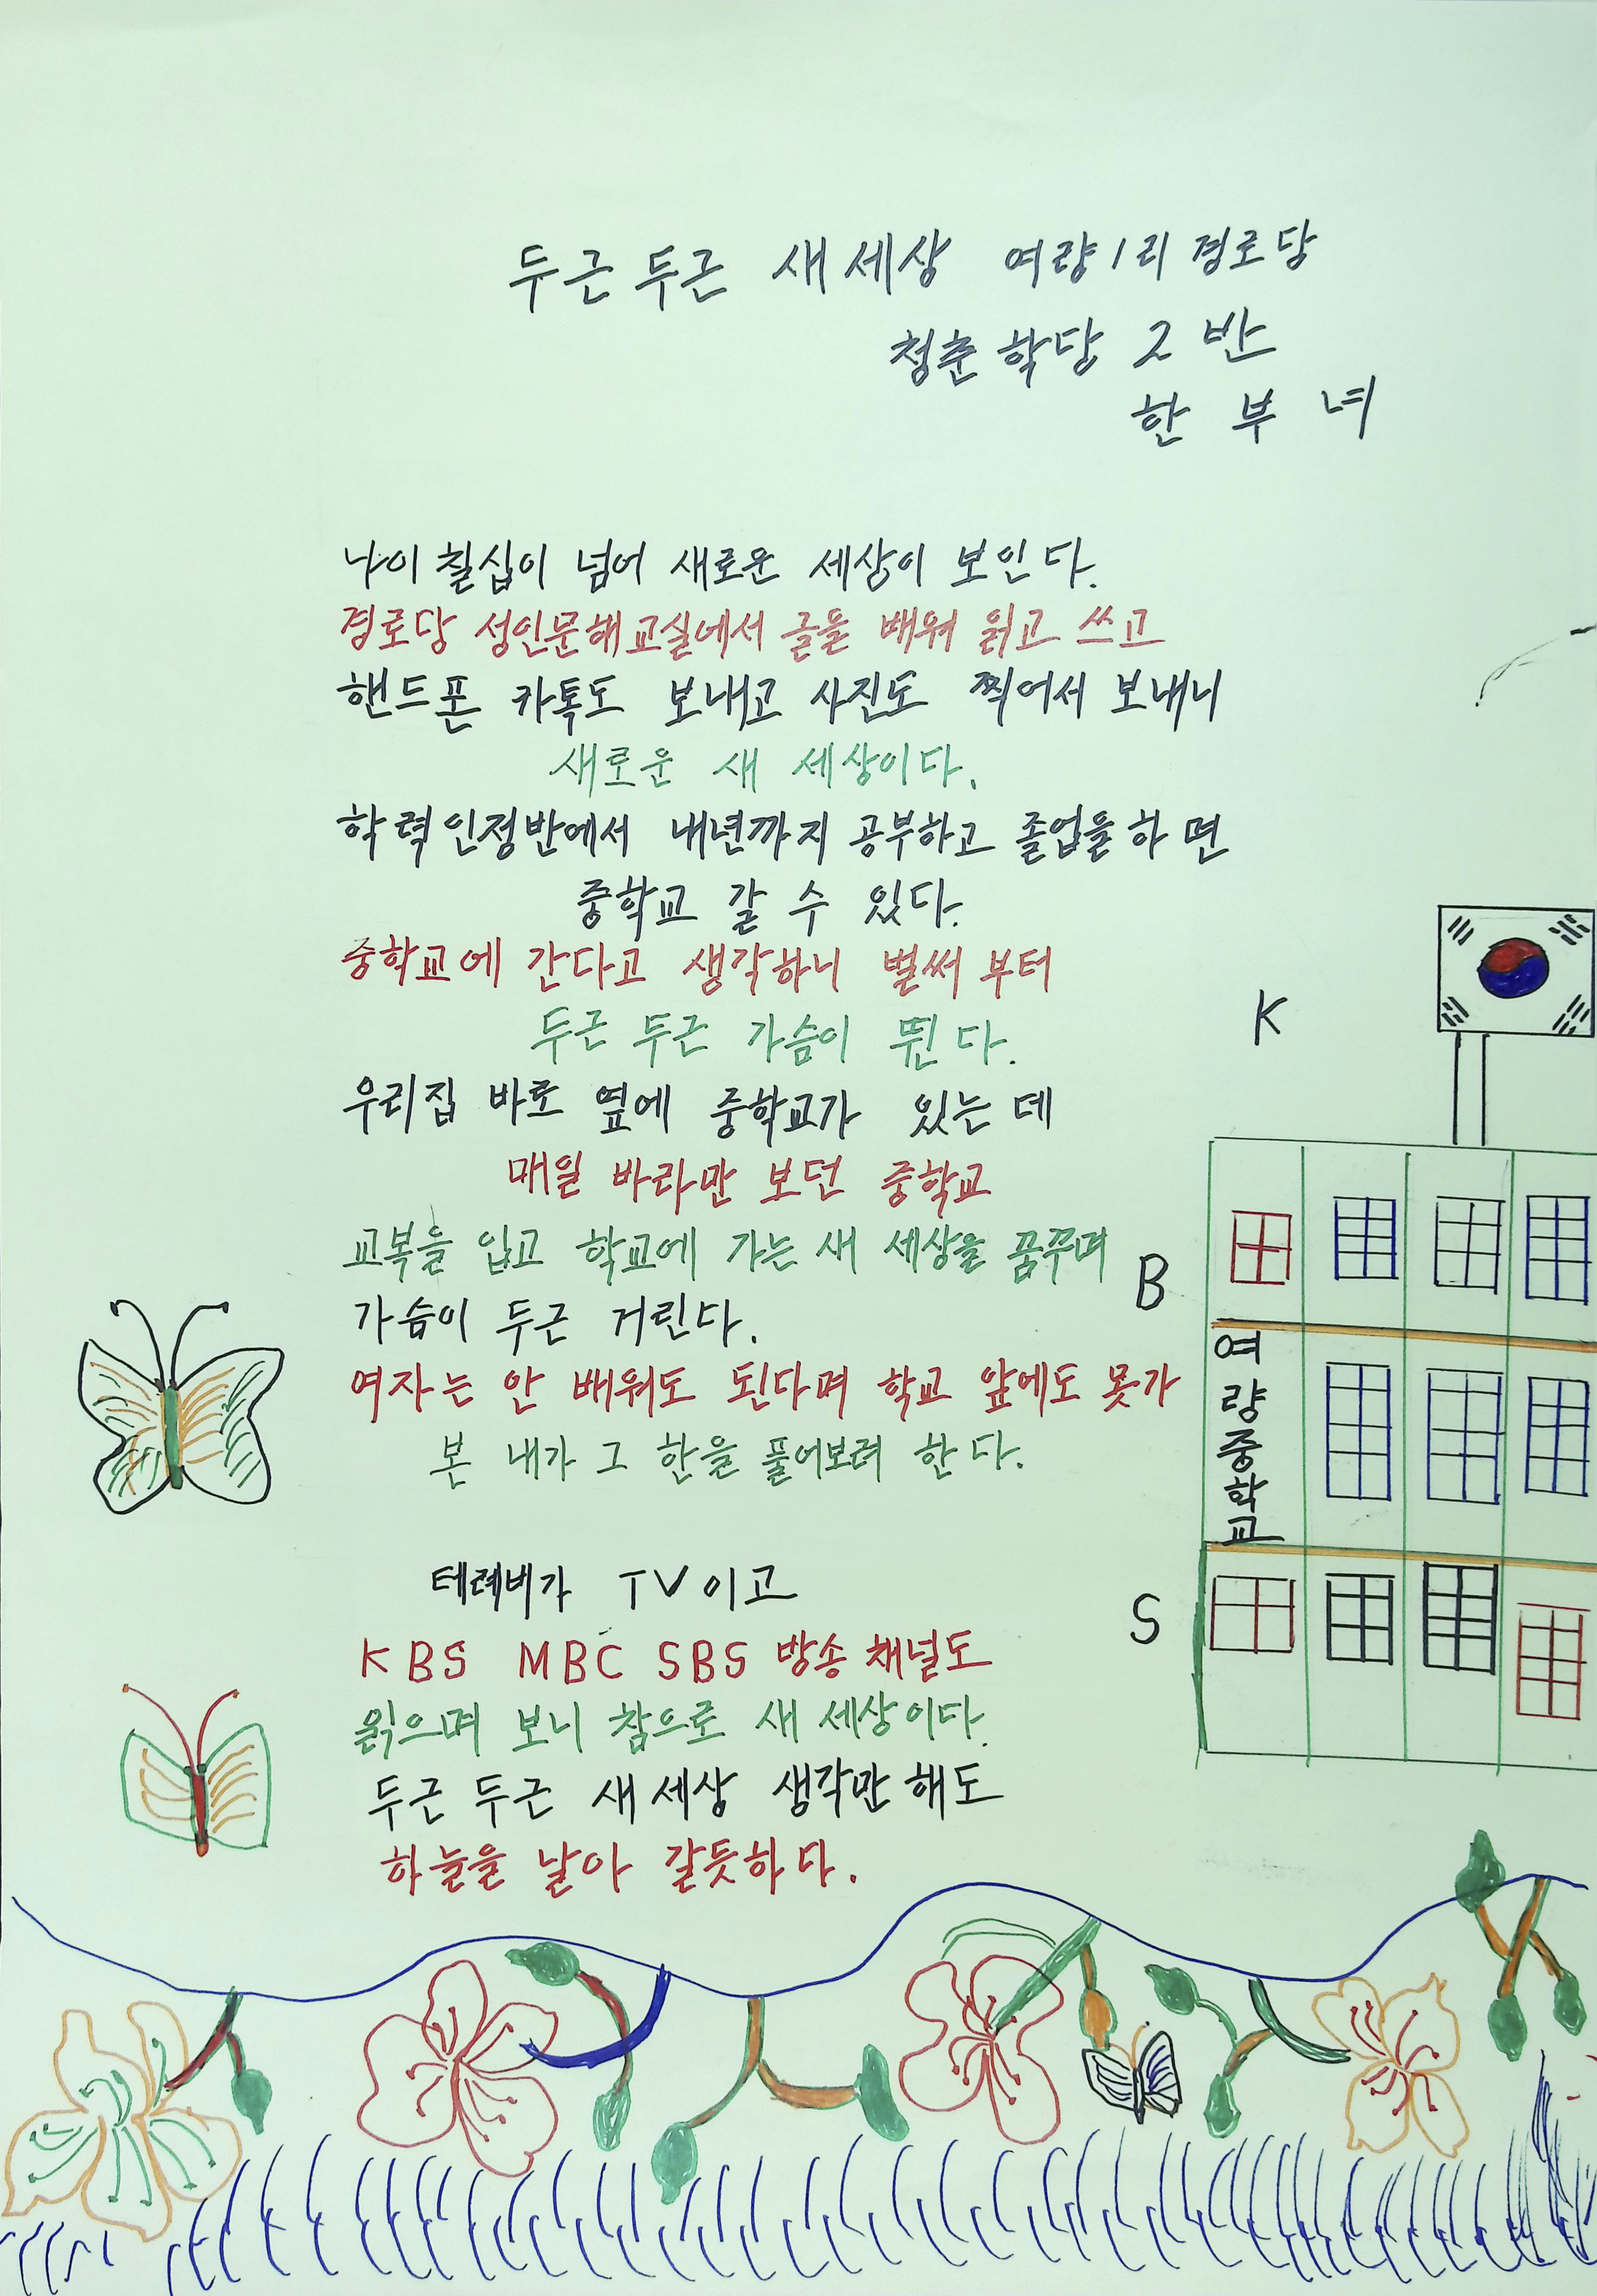 두근두근 새세상 여량1리 경로당
청춘학당 2반
한부녀
나이 칠십이 넘어 새로운 세상이 보인다.
경로당 성인문해교실에서 글을 배워 읽고 쓰고
핸드폰 카톡도 보내고 사진도 찍어서 보내니
새로운 새 세상이다.
학력인정반에서 내년까지 공부하고 졸업을하면
중학교 갈 수 있다.
중학교에 간다고 생각하니 벌써 부터
두근 두근 가슴이 뛴다.
우리집 바로 옆에 중학교가 있는데
매일 바라만 보던 중학교
교복을 입고 학교에 가는 새 세상을 꿈꾸며
가슴이 두근 거린다.
여자는 안 배워도 된다며 학교 앞에도 못가
본 내가 그 한을 풀어보려 한다.
테레비가 TV이고
KBS MBC SBS 방송 채널도
읽으며 보니 참으로 새 세상이다.
두근 두근 새세상 생각만해도
하늘을 날아 갈듯하다.
K
B
S
여량중학교